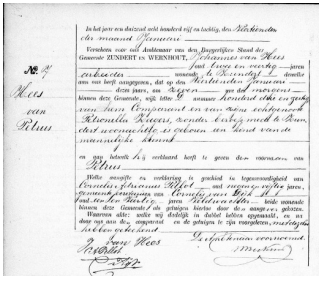 In het jaar een duizend acht honderd vijf en tachtig, den veertienden
der maand Januari
Verscheen voor ons Ambtenaar van den Burgerlijken Stand der
Gemeente ZUNDERT EN WERNHOUT, Johannes van Hees
oud twee en veertig jaren
arbeider wonende te Zundert, dewelke
aan ons heeft aangegeven, dat op den Januari
dezes jaars, om zeven ure des morgens
binnen deze Gemeente, wijk letter nummer honderd
van hem Comparant en van zijne echtgenoot
Petronella zonder beroep mede te Zun-
dert woonachtig, is geboren een kind van de
mannelijke kunne
en aan hetwelk hij verklaard heeft te geven den voornaam van
Petrus
Welke aangifte en verklaring is geschied in tegenwoordigheid van
Cornelis Adrianus oud negen en vijftig jaren,
en van Cornelis van Dijk
oud veertig jaren Veldwachter beide wonende
binnen deze Gemeente als getuigen hiertoe door den aangever gekozen.
Waarvan akte: welke wij dadelijk in dubbel hebben opgemaakt, en na
dat zij aan den aangever en de getuigen is voorgelezen,
hebben geteekend
No. 7
Hees
van
Petrus
van Hees
De Ambtenaar voornoemd